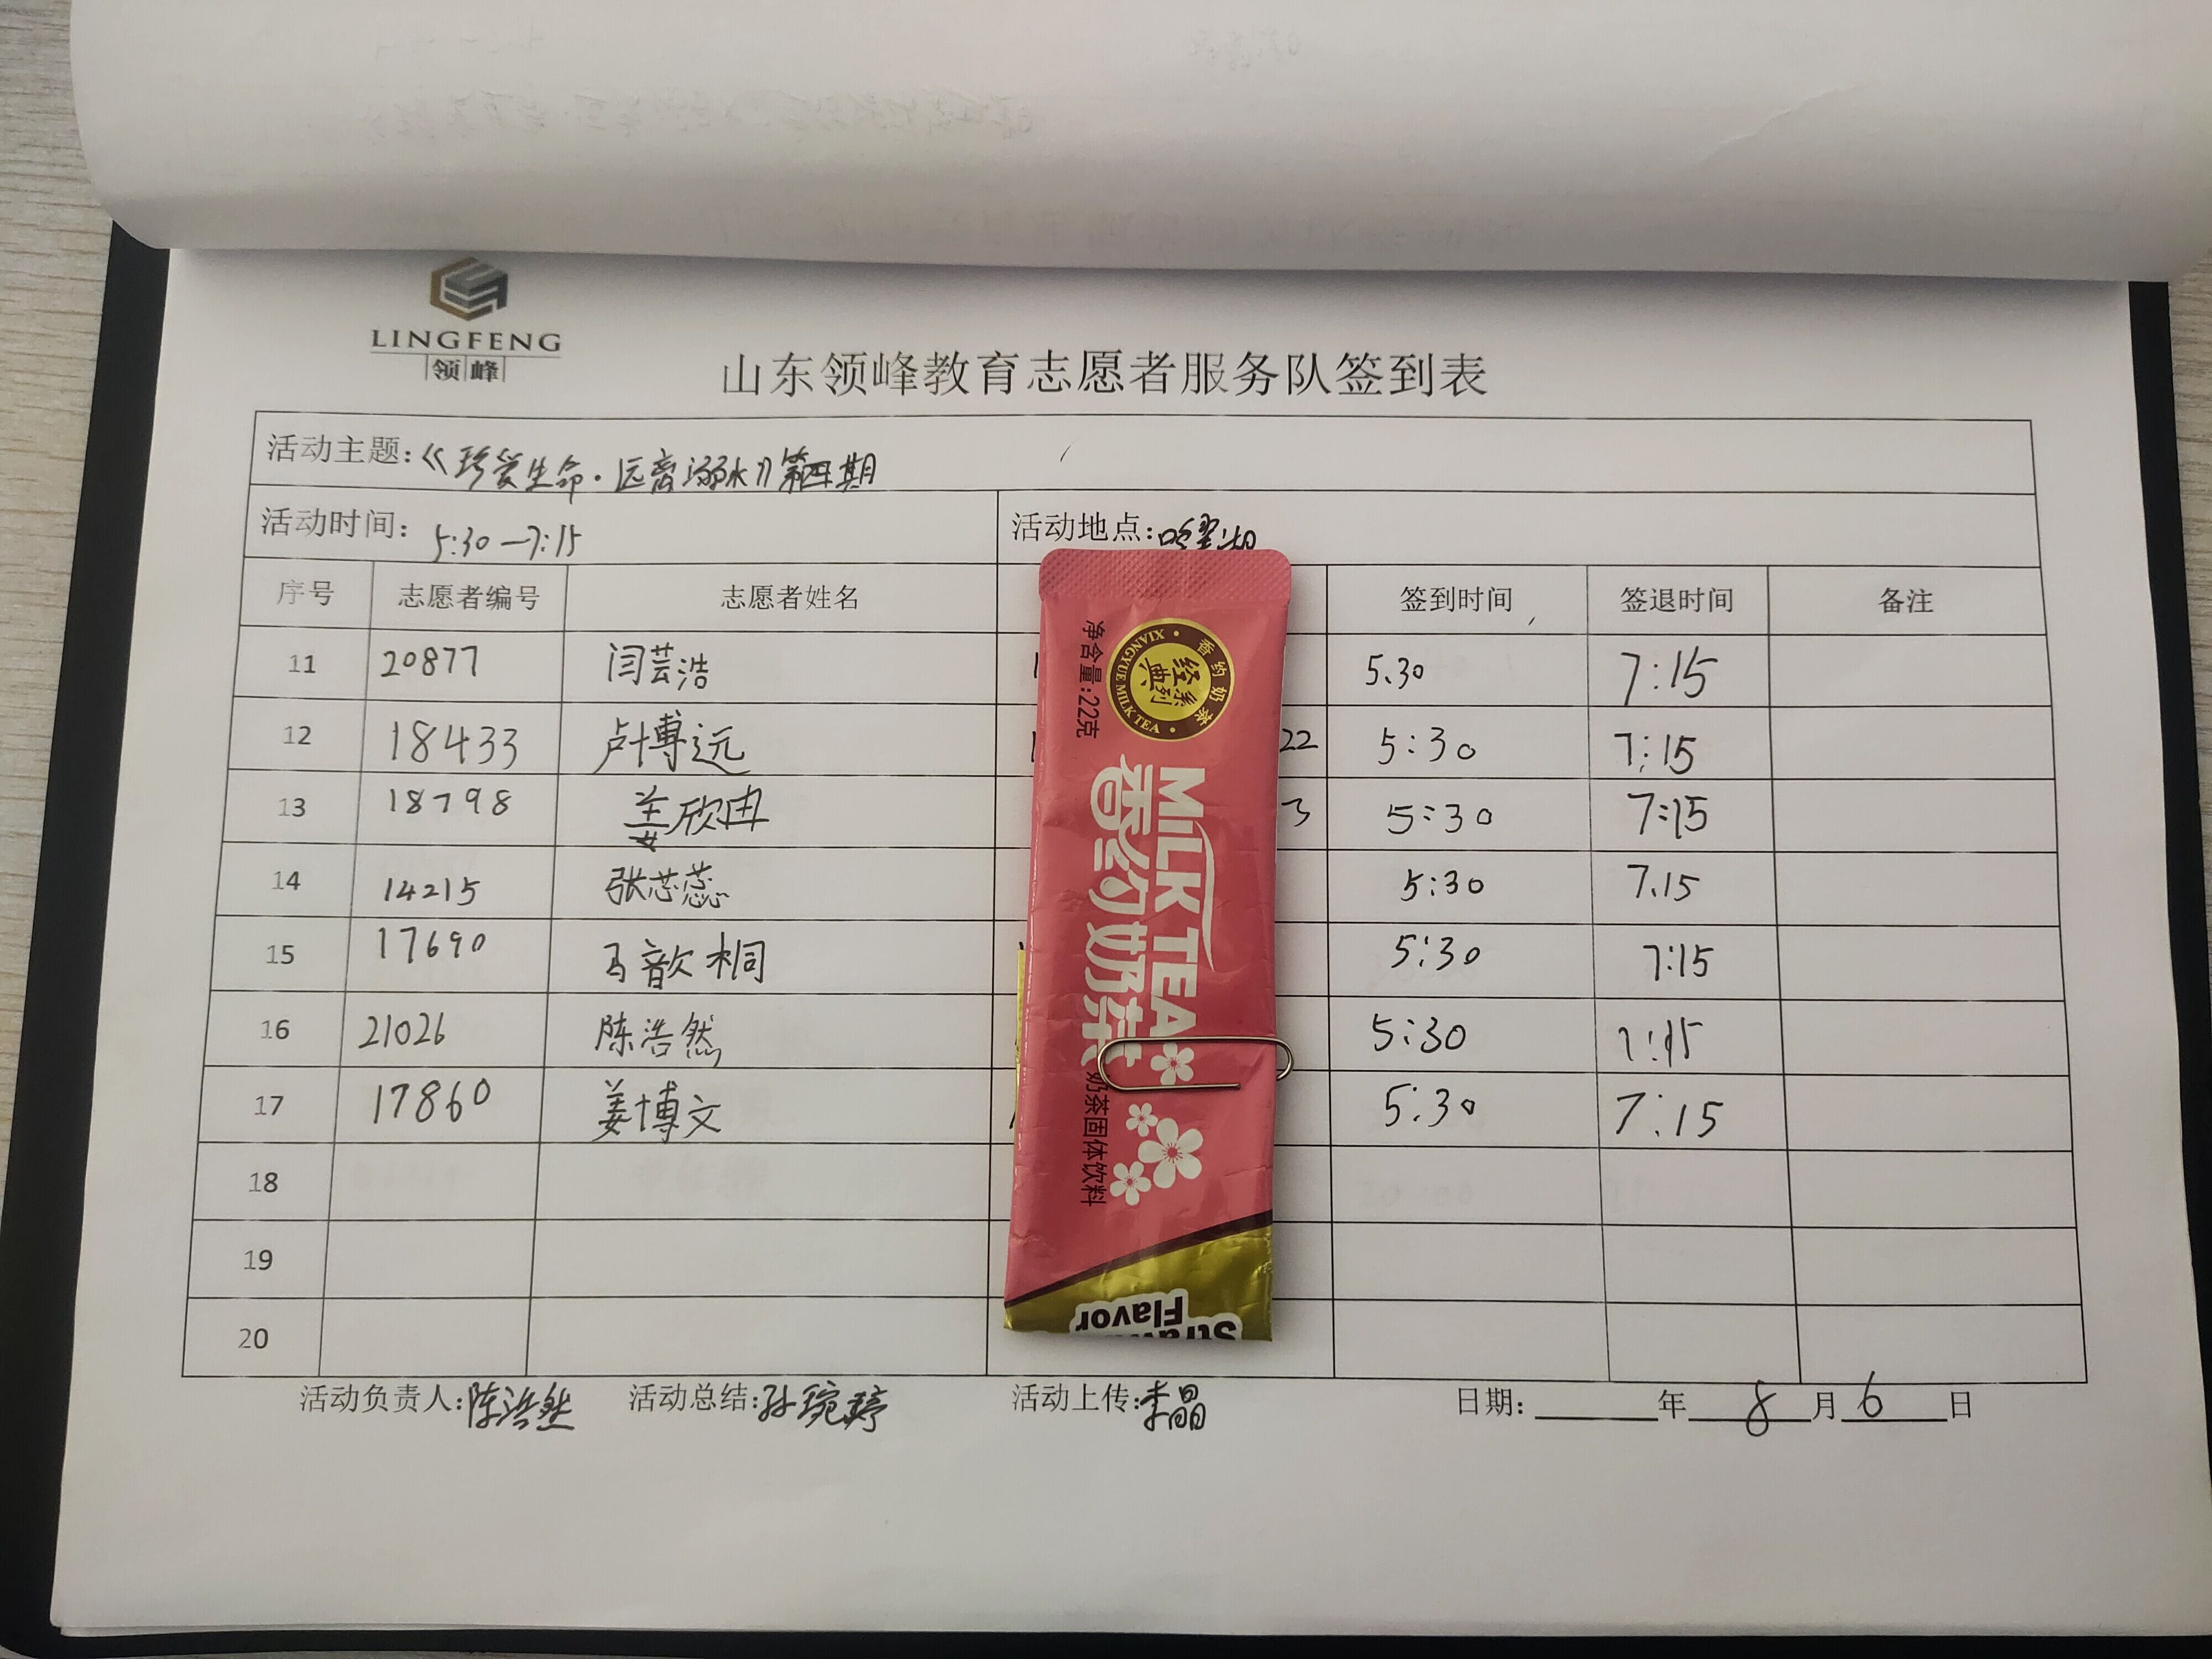 LINGFENG
领峰
山东领峰教育志愿者服务队签到表
活动主题:《珍爱生命·远离溺水》第四期
活动时间: 5:30—7:15 活动地点:
序号 志愿者编号 志愿者姓名 签到时间 签退时间 备注
11 20877 闫芸浩 5.30 7:15
12 18433 卢博远 22 5:30 7:15
13 18798 姜欣冉 3 5:30 7:15
14 14215 张芯蕊 5:30 7.15
15 17690 马歆桐 5:30 7:15
16 21026 陈浩然 5:30 7:15
17 17860 姜博文 5:30 7:15
18
19
20
活动负责人:陈浩然 活动总结:孙琬婷 活动上传:李晶 日期: 年 8 月 6 日
香约奶茶
XIANGYUE MILK TEA
经典系列
净含量:22克
MILK TEA
香约奶茶
奶茶固体饮料
Flavor